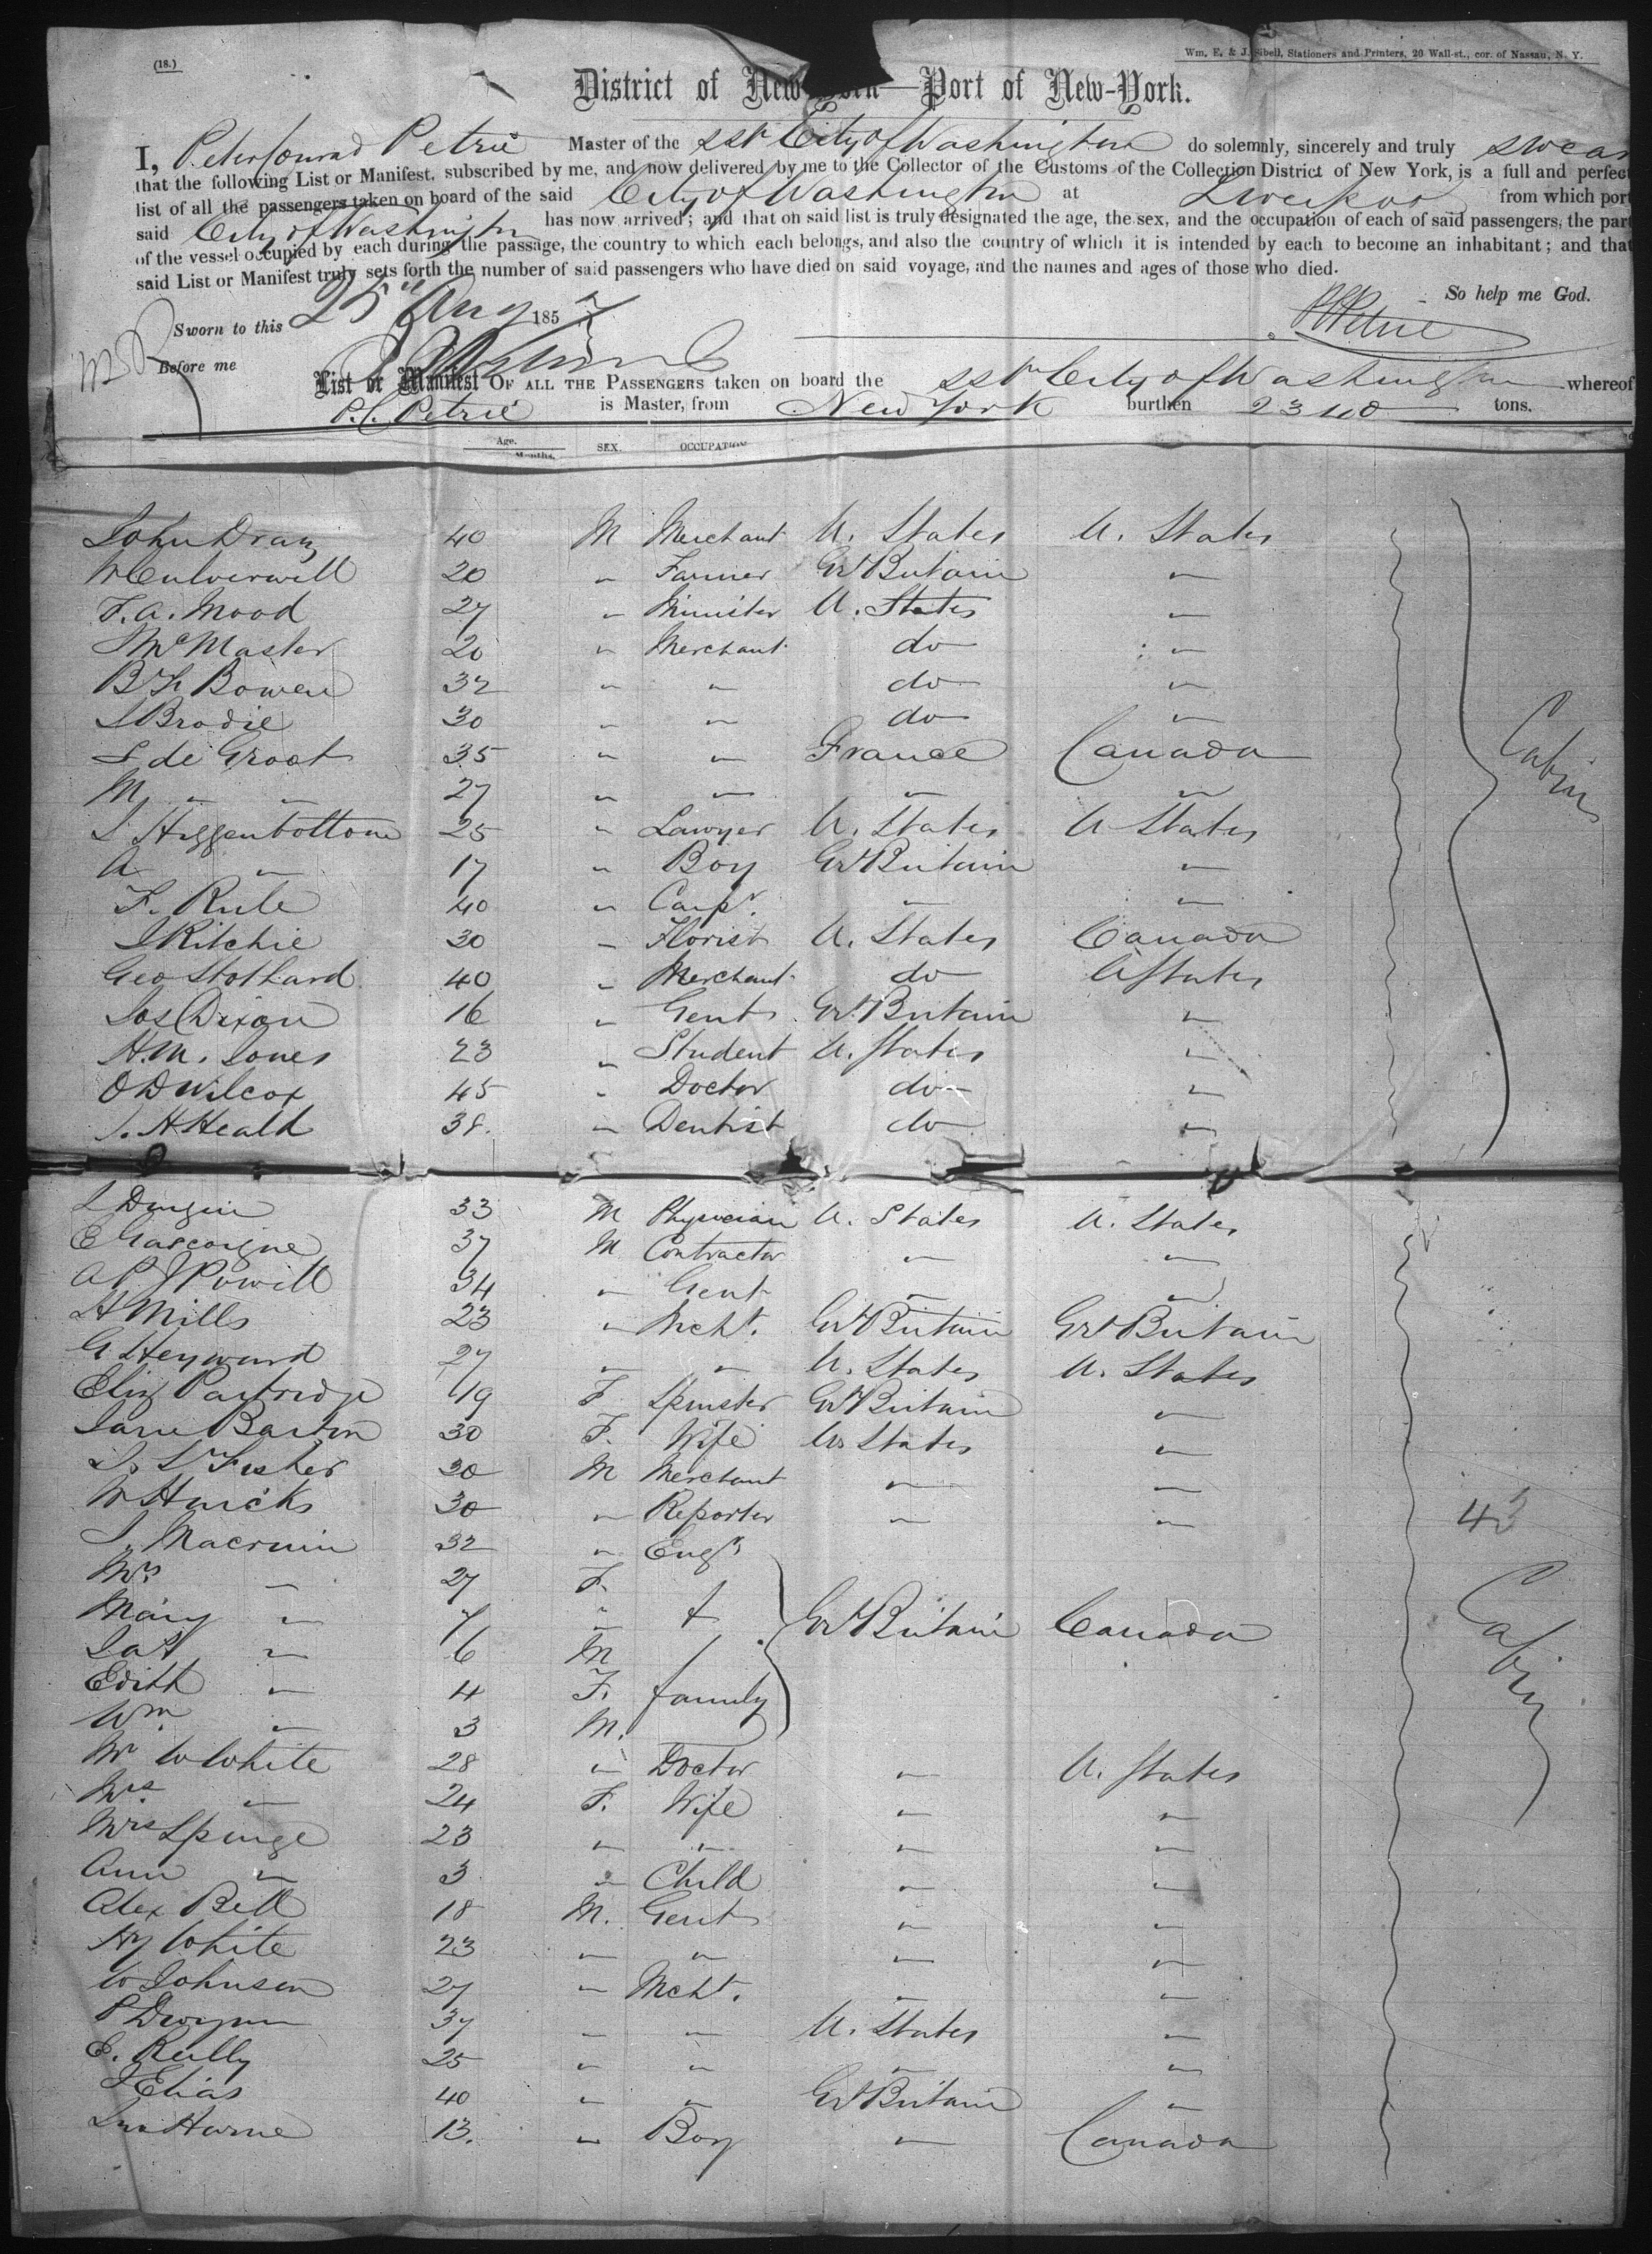 (18.)
Wm. E. & J. Sibell, Stationers and Printers, 20 Wall-st., cor. of Nassau, N. Y.
District of New-York—Port of New-York.
I, Peter Conrad Petrie Master of the SSr City of Washington do solemnly, sincerely and truly swear
that the following List or Manifest, subscribed by me, and now delivered by me to the Collector of the Customs of the Collection District of New York, is a full and perfect
list of all the passengers taken on board of the said City of Washington at Liverpool from which port
said City of Washington has now arrived; and that on said list is truly designated the age, the sex, and the occupation of each of said passengers, the part
of the vessel occupied by each during the passage, the country to which each belongs, and also the country of which it is intended by each to become an inhabitant; and that
said List or Manifest truly sets forth the number of said passengers who have died on said voyage, and the names and ages of those who died.
So help me God.
Sworn to this 25" Aug 1857
P C Petrie
Before me
List or Manifest OF ALL THE PASSENGERS taken on board the SSr City of Washington whereof
P. C. Petrie is Master, from New York burthen 2340 tons.
Age. Months. SEX. OCCUPATION
John 40 M Merchant U. States U. States
W Culverwell 20 " Farmer Gt Britain "
F. A. Mood 27 " Minister U. States "
McMaster 20 " Merchant do "
B F Bowen 32 " " do "
J Brodie 30 " " do "
S de Groot 35 " " France Canada
M " " 27 " " " "
J Higgenbottom 25 " Lawyer U. States U States
A " 17 " Boy Gt Britain "
F. Rule 40 " Carpr. " "
J Ritchie 30 " Florist U. States Canada
Geo Stothard 40 " Merchant do U States
Jos Dixon 16 " Gent Gt Britain "
H. M. Jones 23 " Student U. States "
O D Wilcox 45 " Doctor do "
J. H Heald 38. " Dentist do "
Cabin
L Durgin 33 M Physician U. States U. States
E Gascoigne 37 M Contractor " "
A P J Powill 34 " Gent " "
H Mills 23 " Mcht. Gt Britain Gt Britain
G Heyward 27 " " U. States U. States
Eliz Partridge 19 F Spinster Gt Britain "
Jane Barton 30 F. Wife U. States "
Fisher 30 M Merchant " "
W Hincks 30 " Reporter " "
J. Macrnin 32 " Engr
Mrs " 27 F.
Mary " 7 " & Gt Britain Canada
Jas " 6 M
Edith " 4 F. family
Wm " 3 M.
Mr W White 28 " Doctor " U. States
Mrs " 24 F. Wife " "
Mrs Spinge 23 " " " "
Ann " 3 " Child " "
Alex Bell 18 M. Gent " "
Hy White 23 " " " "
W Johnson 27 " Mcht. " "
P Dwynn 37 " " U. States "
E. Reilly 25 " " " "
J Elias 40 " " Gt Britain "
Horne 13. " Boy " Canada
43
Cabin